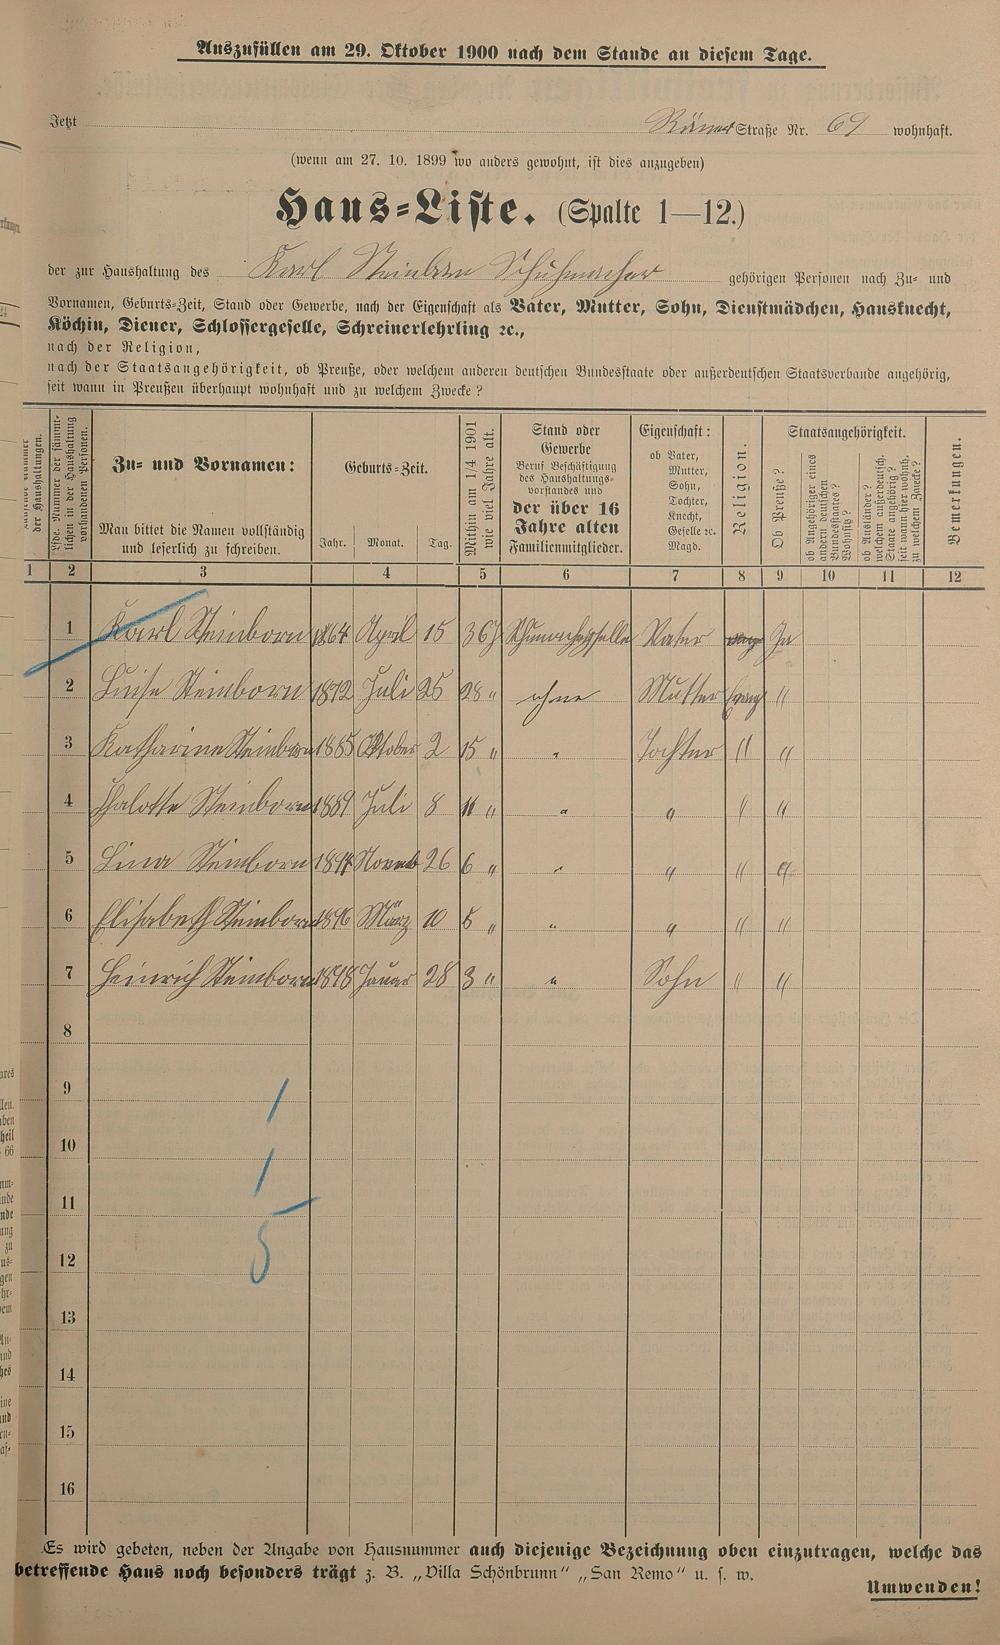 Auszufüllen am 29. Oktober 1900 nach dem Stande an diesem Tage.
Jetzt Römer Straße Nr. 69 wohnhaft.
(wenn am 27. 10. 1899 wo anders gewohnt, ist dies anzugeben)
Haus=Liste. (Spalte 1—12.)
der zur Haushaltung des Karl Steinborn Schuhmacher gehörigen Personen nach Zu- und
Vornamen, Geburts=Zeit, Stand oder Gewerbe, nach der Eigenschaft als Vater, Mutter, Sohn, Dienstmädchen, Hausknecht,
Köchin, Diener, Schlossergeselle, Schreinerlehrling ꝛc.,
nach der Religion,
nach der Staatsangehörigkeit, ob Preuße, oder welchem anderen deutschen Bundesstaate oder außerdeutschen Staatsverbande angehörig,
seit wann in Preußen überhaupt wohnhaft und zu welchem Zwecke?
der Haushaltungen.
Lfde. Nummer der sämmt-
lichen in der Haushaltung
vorhandenen Personen.
Zu= und Vornamen:
Man bittet die Namen vollständig
und leserlich zu schreiben.
Geburts=Zeit.
Jahr. Monat. Tag.
Mithin am 1/4 1901
wie viel Jahre alt.
Stand oder
Gewerbe
Beruf Beschäftigung
des Haushaltungs-
vorstandes und
der über 16
Jahre alten
Familienmitglieder.
Eigenschaft:
ob Vater,
Mutter,
Sohn,
Tochter,
Knecht,
Geselle ꝛc.
Magd.
Religion.
Staatsangehörigkeit.
Ob Preuße?
ob Angehöriger eines
andern deutschen
Bundesstaates?
Wohnsitz?
ob Ausländer?
welchem außerdeutsch.
Staate angehörig?
seit wann hier wohnh.
zu welchem Zwecke?
Bemerkungen.
1 2 3 4 5 6 7 8 9 10 11 12
1 Karl Steinborn 1864 April 15 36 J Schumachergeselle Vater evang Ja
2 Luise Steinborn 1872 Juli 25 28 " ohne Mutter Evang "
3 Katharine Steinborn 1885 Oktober 2 15 " " Tochter " "
4 Chalotte Steinborn 1889 Juli 8 11 " " " " "
5 Lina Steinborn 1894 Novemb 26 6 " " " " "
6 Elisabeth Steinborn 1896 März 10 5 " " " " "
7 Heinrich Steinborn 1898 Januar 28 3 " " Sohn " "
8
9 1
10 1
11
12 5
13
14
15
16
Es wird gebeten, neben der Angabe von Hausnummer auch diejenige Bezeichnung oben einzutragen, welche das
betreffende Haus noch besonders trägt z. B. „Villa Schönbrunn" „San Remo" u. s. w.
Umwenden!